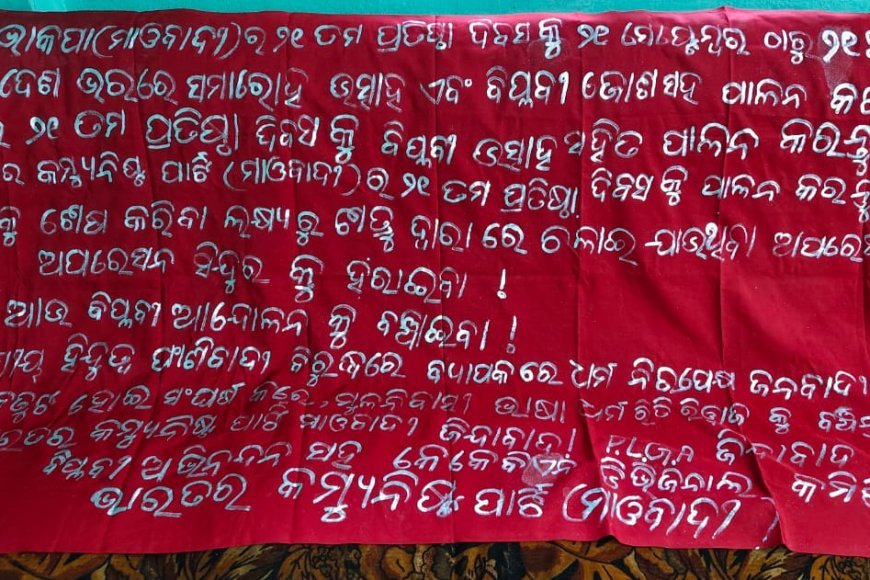 ଭାକପା(ମାଓବାଦୀ)ର ୨୧ ତମ ପ୍ରତିଷ୍ଠା ଦିବସ କୁ ୨୧ ସେପ୍ଟେମ୍ବର ଠାରୁ ୨୧
ଦେଶ ଭରରେ ସମାରୋହ ଉତ୍ସାହ ଏବଂ ବିପ୍ଳବୀ ଜୋଶ ସହ ପାଳନ
୨୧ ତମ ପ୍ରତିଷ୍ଠା ଦିବସ କୁ ବିପ୍ଳବୀ ଉତ୍ସାହ ସହିତ ପାଳନ କରନ୍ତୁ
ର କମ୍ୟୁନିଷ୍ଟ ପାର୍ଟି (ମାଓବାଦୀ)ର ୨୧ ତମ ପ୍ରତିଷ୍ଠା ଦିବସ କୁ ପାଳନ କରନ୍ତୁ
କୁ ଶେଷ କରିବା ଲକ୍ଷ୍ୟ ରୁ ଦ୍ୱାରା ରେ ଚଳାଇ ଯାଉଥିବା ଅପରେ
ଅପରେସନ ସିନ୍ଦୁର କୁ ହରାଇବା !
ଆଉ ବିପ୍ଳବୀ ଆନ୍ଦୋଳନ କୁ ବଞ୍ଚାଇବା !
ହିନ୍ଦୁତ୍ୱ ଫାଶିବାଦୀ ବିରୁଦ୍ଧରେ ବ୍ୟାପକ ରେ ଧର୍ମ ନିରପେକ୍ଷ ଜନବାଦୀ
ହୋଇ ସଂଘର୍ଷ ମୂଳନିବାସୀ ଭାଷା ଧର୍ମ ରୀତି ରିବାଜ କୁ
ରତର କମ୍ୟୁନିଷ୍ଟ ପାର୍ଟି ମାଓବାଦୀ ଜିନ୍ଦାବାଦ! P.L.G.A ଜିନ୍ଦାବାଦ
ବିପ୍ଳବୀ ଅଭିନନ୍ଦନ ସହ କେକେବିଏନ ଡିଭିଜନାଲ କମି
ଭାରତର କମ୍ୟୁନିଷ୍ଟ ପାର୍ଟି (ମାଓବାଦୀ)